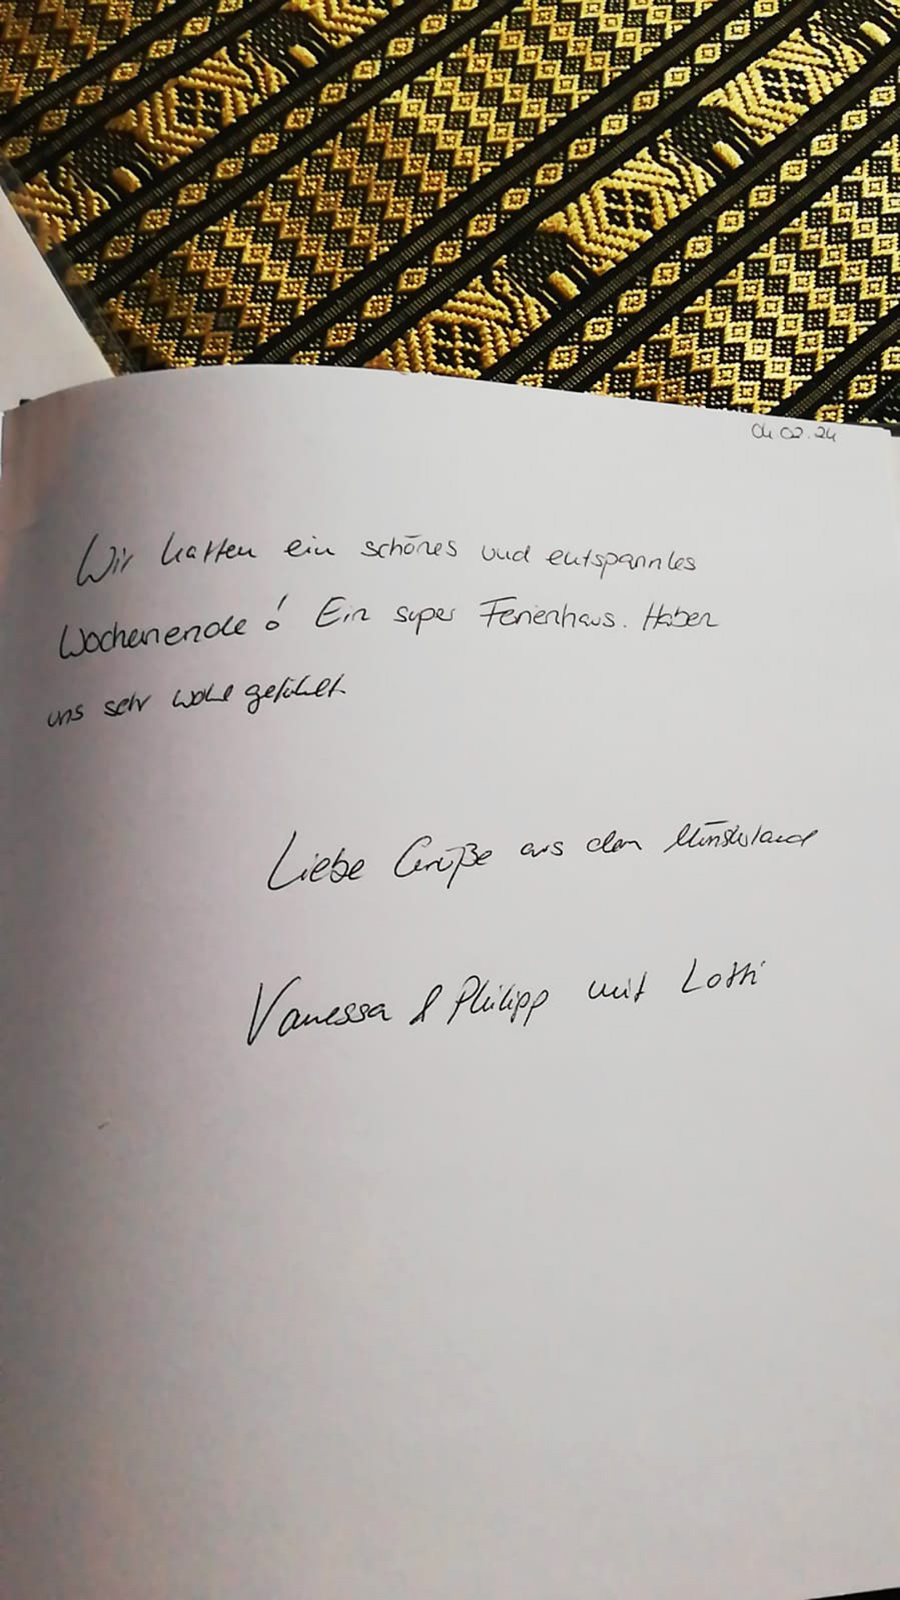 04.02.24
Wir hatten ein schönes und entspanntes
Wochenende! Ein super Ferienhaus. Haben
uns sehr wohl gefühlt.
Liebe Grüße aus dem Münsterland
Vanessa & Philipp mit Lotti